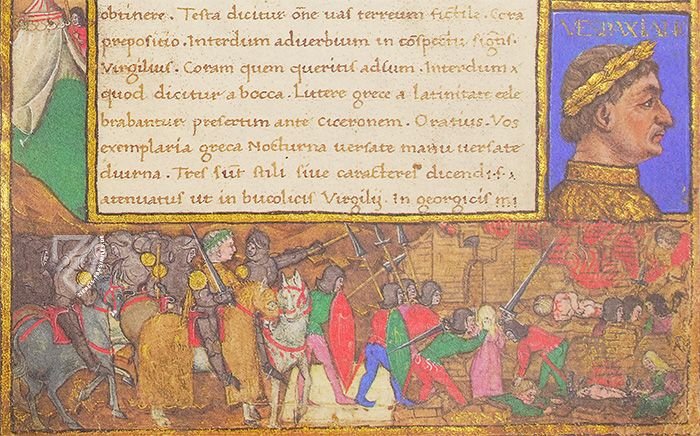 obtinere . Testa dicitur om̄e uas terreum fictile . Cora
prepositio . Interdum aduerbium in cōspectu sigt̄s .
Virgilius . Coram quem queritis adsum . Interdum x
quod dicitur a bocca . Littere grece a latinitate cele
brabantur presertim ante ciceronem . Oratius . Vos
exemplaria greca Nocturna uersate manu uersate
diurna . Tres sūt stili siue caracteres dicendi . s .
atenuatus ut in bucolicis Virgilij . In georgicis mi